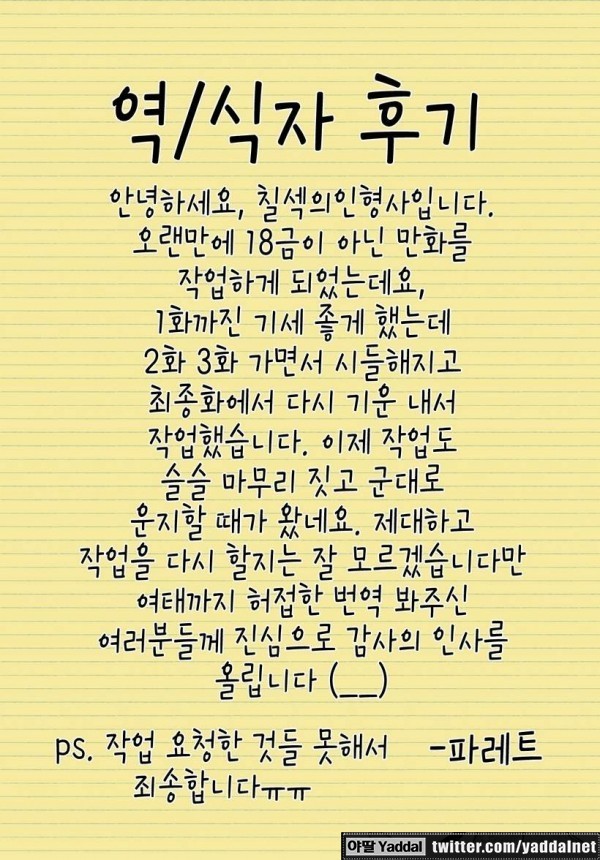 역/식자 후기
안녕하세요, 칠섹의인형사입니다.
오랜만에 18금이 아닌 만화를
작업하게 되었는데요,
1화까진 기세 좋게 했는데
2화 3화 가면서 시들해지고
최종화에서 다시 기운 내서
작업했습니다. 이제 작업도
슬슬 마무리 짓고 군대로
운지할 때가 왔네요. 제대하고
작업을 다시 할지는 잘 모르겠습니다만
여태까지 허접한 번역 봐주신
여러분들께 진심으로 감사의 인사를
올립니다 (__)
ps. 작업 요청한 것들 못해서 -파레트
죄송합니다ㅠㅠ
야딸 Yaddal twitter.com/yaddalnet